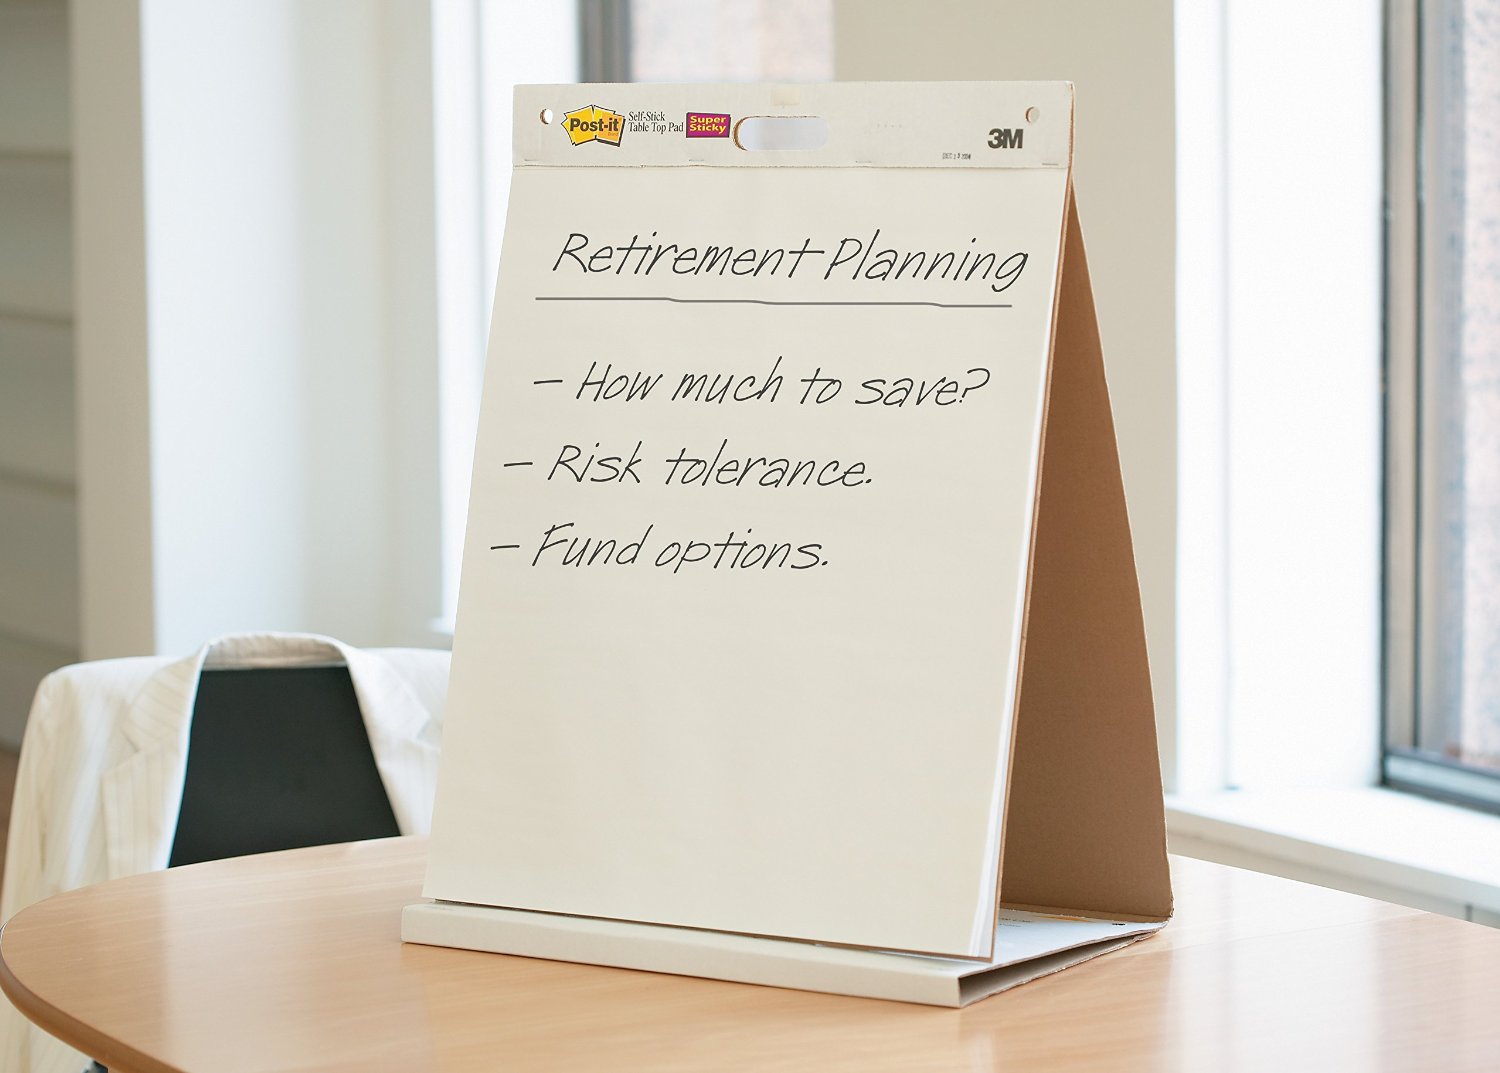 Post-it Self-Stick Super
Table Top Pad Sticky
3M
Retirement Planning
– How much to save?
– Risk tolerance.
– Fund options.